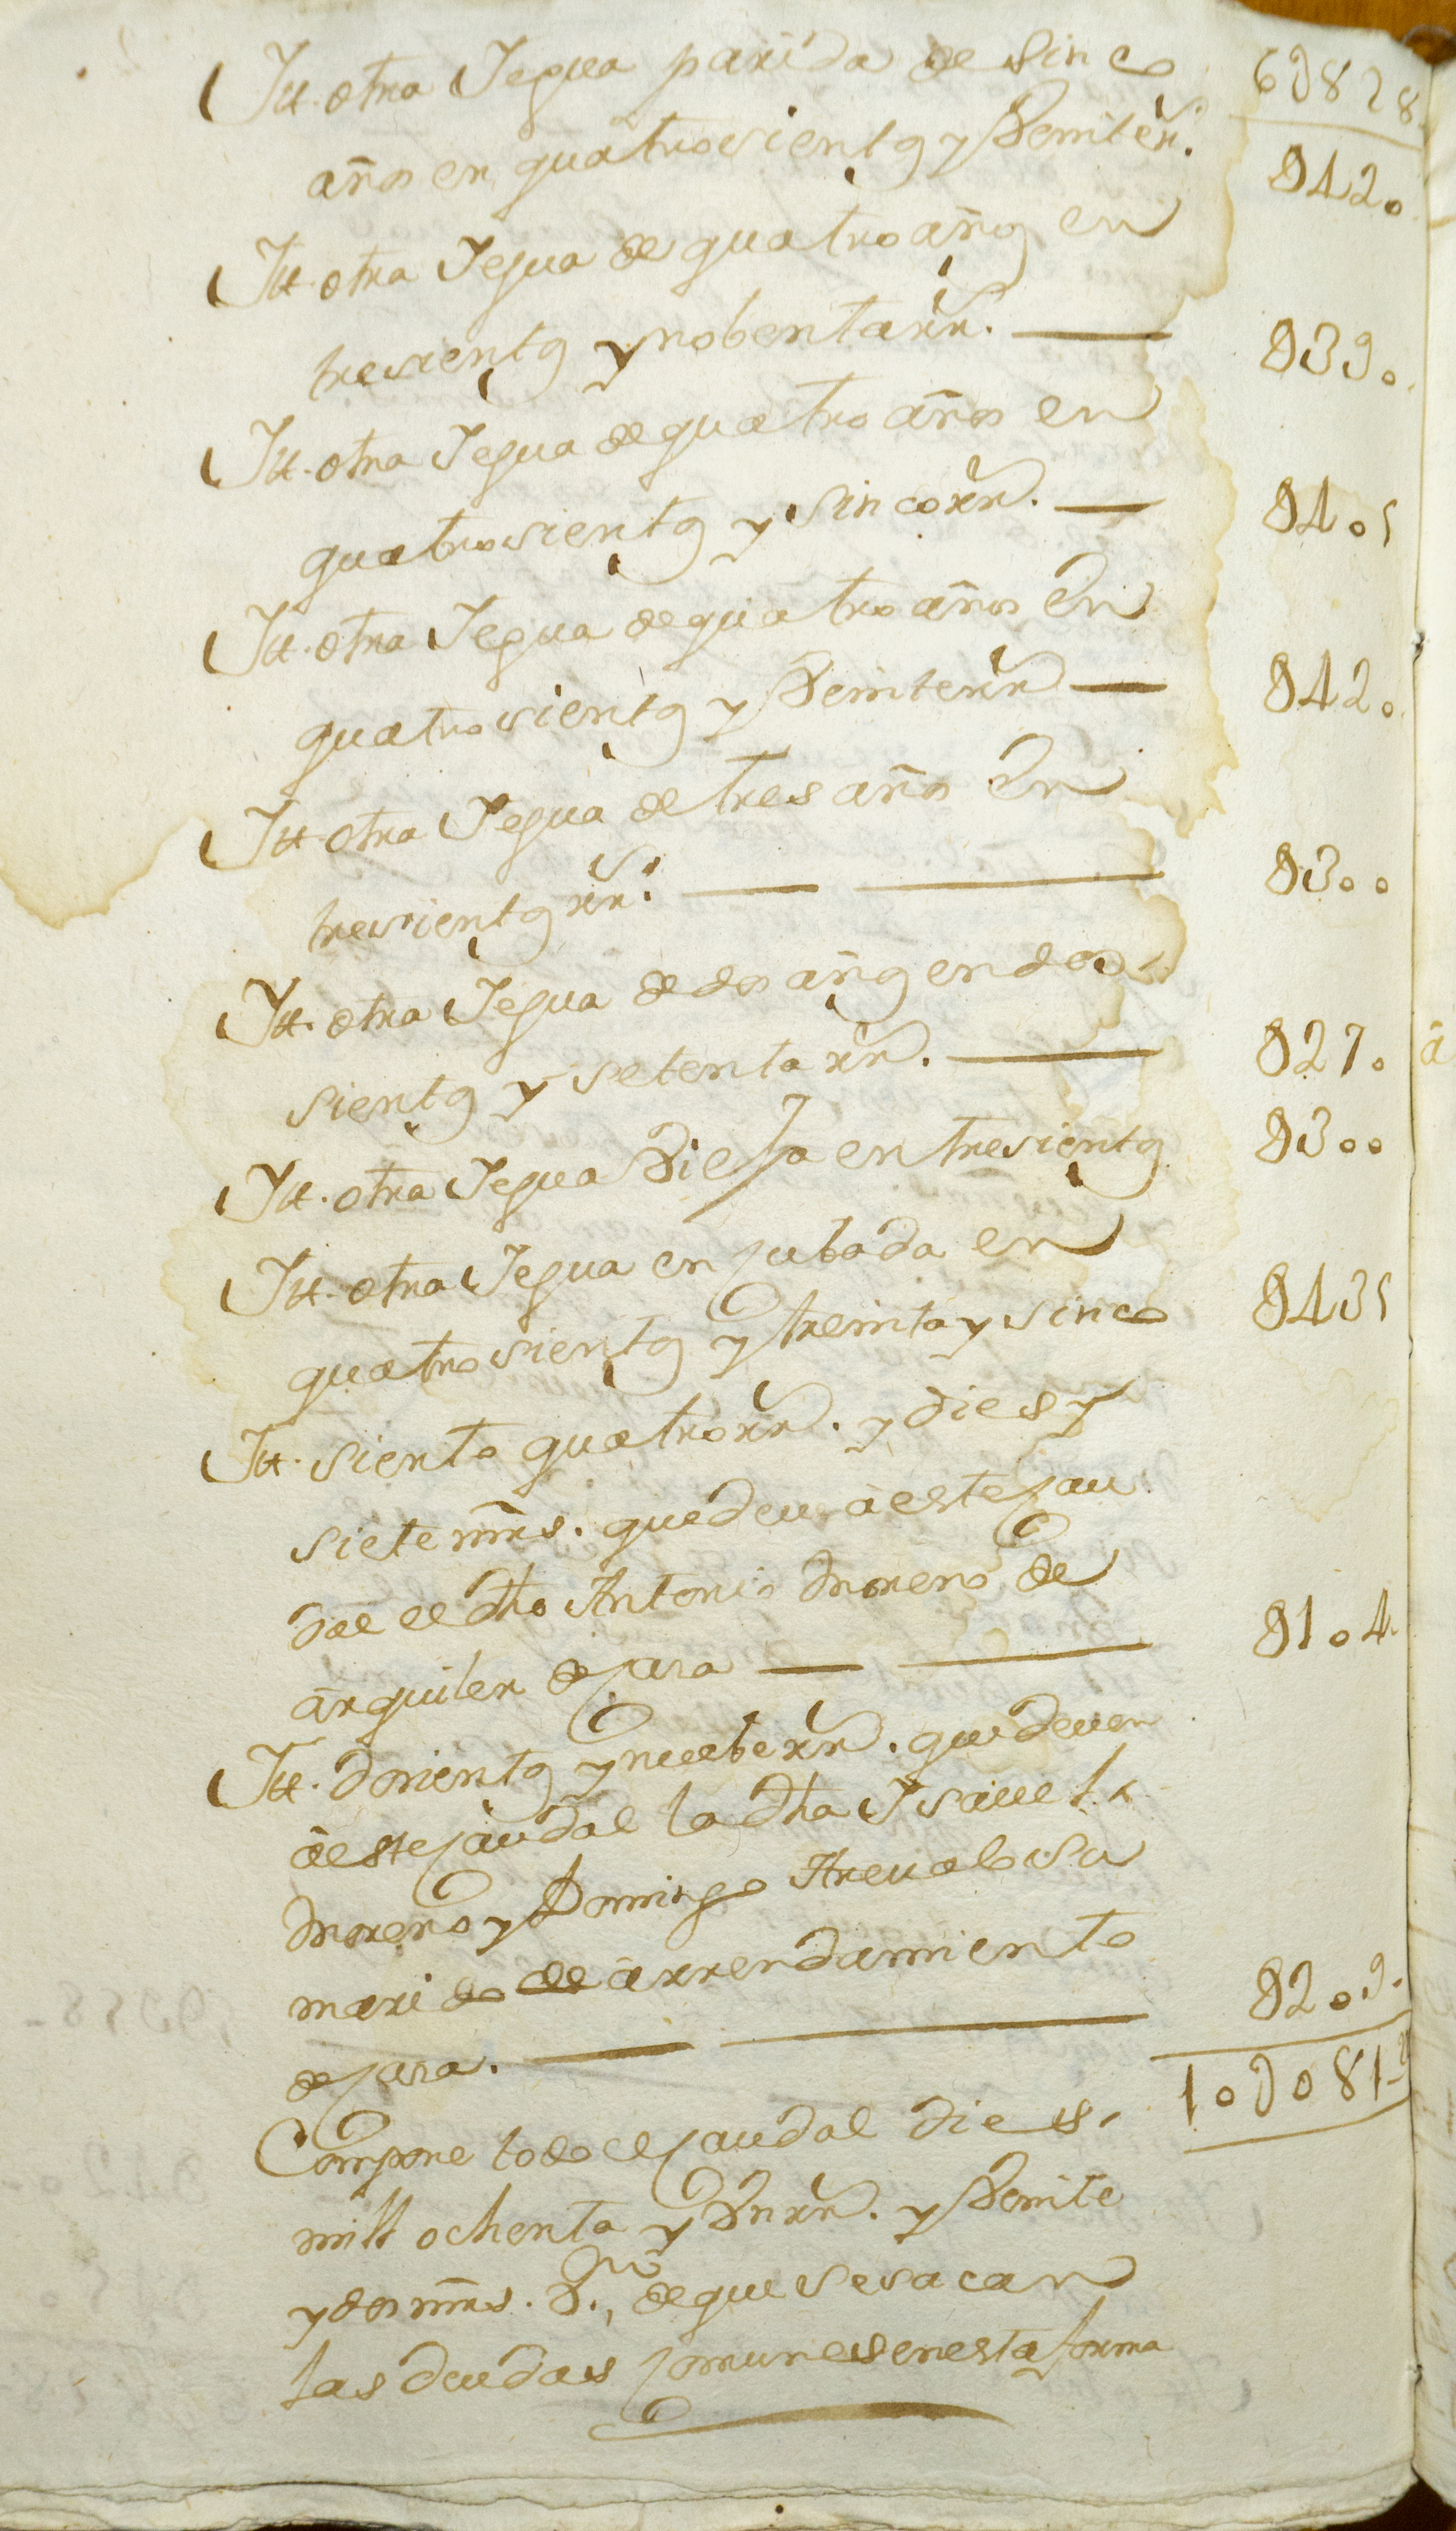 6D828
Itt. otra Yegua parida de sinco
años en quatrosientos y Veinte rr.
D420
Itt. otra Yegua de quatro años en
tresientos y nobenta rr.
D390
Itt. otra Yegua de quatro años en
quatrosientos y sinco rr.
D405
Itt. otra Yegua de quatro años En
quatrosientos y Veinte rr
D420
Itt. otra Yegua de tres años En
tresientos rr.
D300
Itt. otra Yegua de dos años en dos
sientos y setenta rr.
D270
Itt. otra Yegua Vieja en tresientos
D300
Itt. otra Yegua en jubada en
quatrosientos y treinta y sinco
D435
Itt. siento quatro rr. y dies y
siete mrs. que deve à este cau
dal el dho Antonio Moreno de
arquiler de casa
D104
Itt. dosientos y nuebe rr. que deven
à este caudal la dha Ysavel
Moreno y Domingo Arevalo su
marido de arrendamiento
de casa.
D209
10D081
Compone todo el caudal dies
mill ochenta y Vn rr. y Veinte
y dos mrs. Vn. de que se sacan
las deudas comunes en esta forma